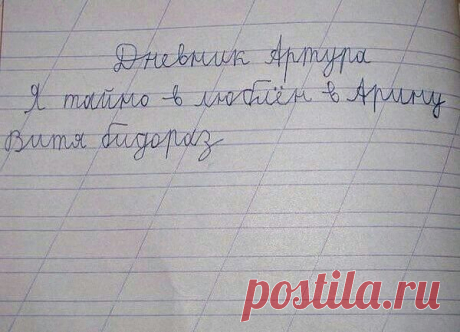 Дневник Артура
Я тайно в люблён в Арину
Витя бидораз
postila.ru